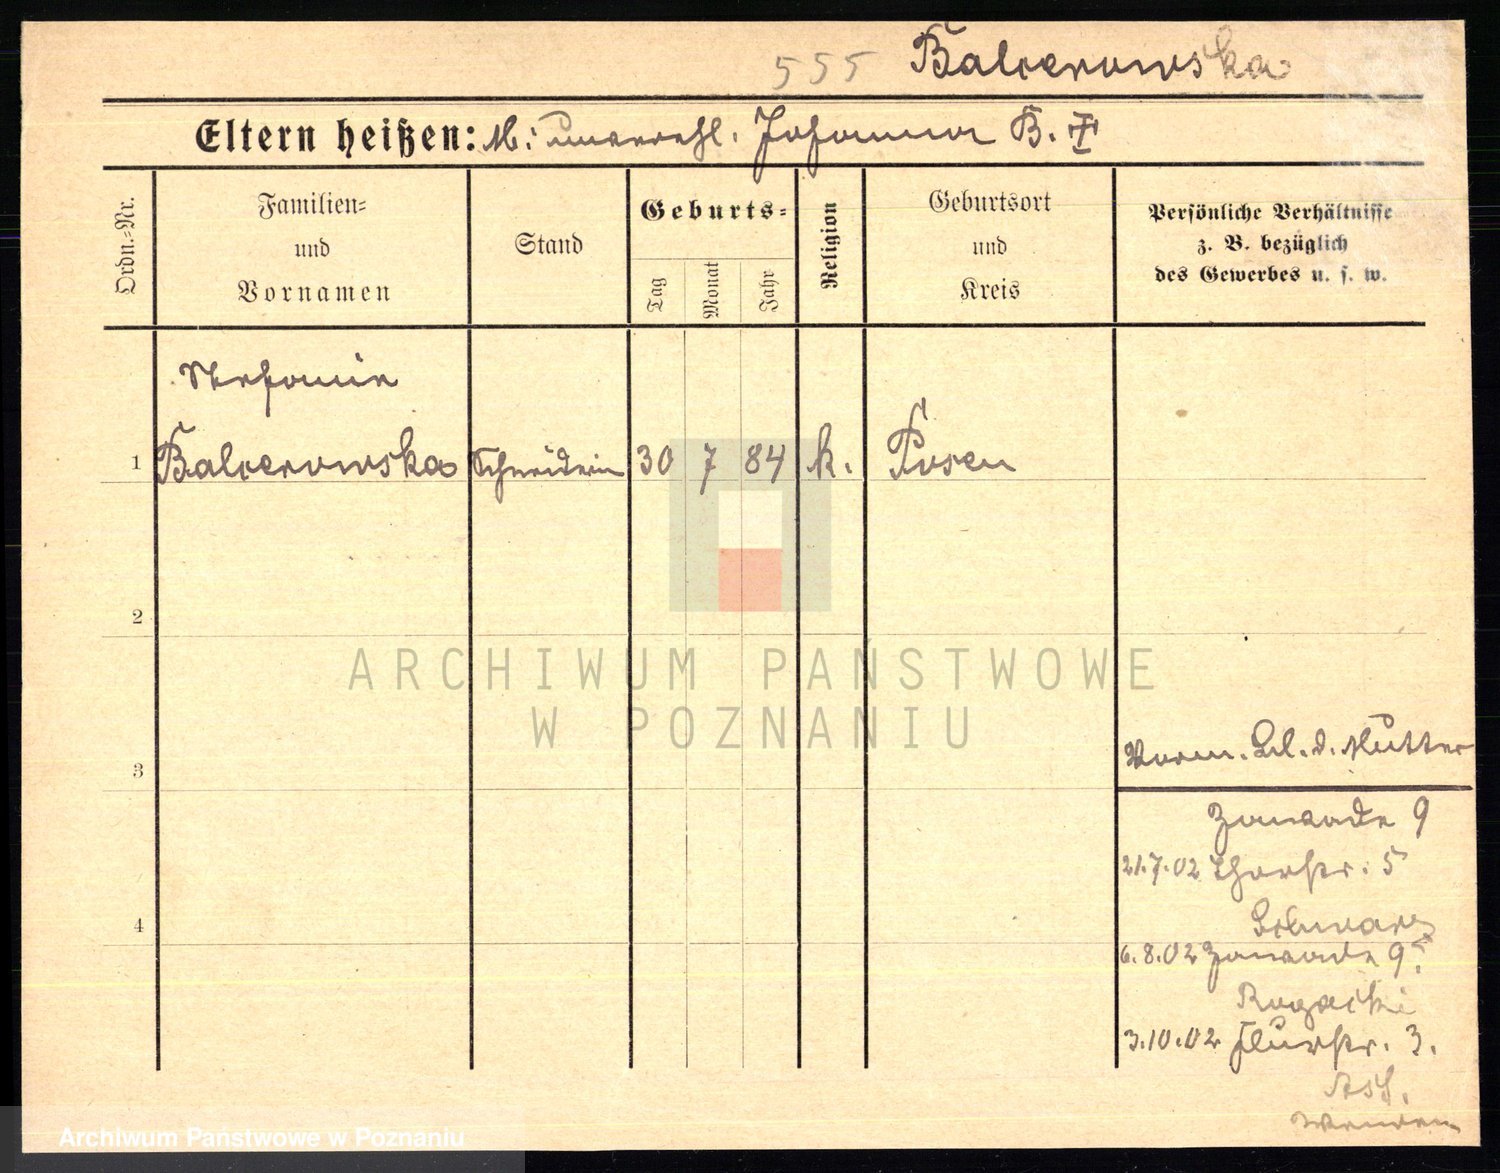 555 Balcerowska
Eltern heißen: M: unverehl. Johanna B. †
Ordn.-Nr.
Familien- und Vornamen
Stand
Geburts-
Tag
Monat
Jahr
Religion
Geburtsort und Kreis
Persönliche Verhältnisse
z. B. bezüglich
des Gewerbes u. s. w.
Stefanie
1 Balcerowska Schneiderin 30 7 84 k. Posen
2
ARCHIWUM PAŃSTWOWE
W POZNANIU
3
Vorm. Bl. d. Mutter
Zawade 9
21.7.02 Thorstr. 5
4
Schwarz
6.8.02 Zawade 9
Rogacki
3.10.02 Flurstr. 3.
Archiwum Państwowe w Poznaniu